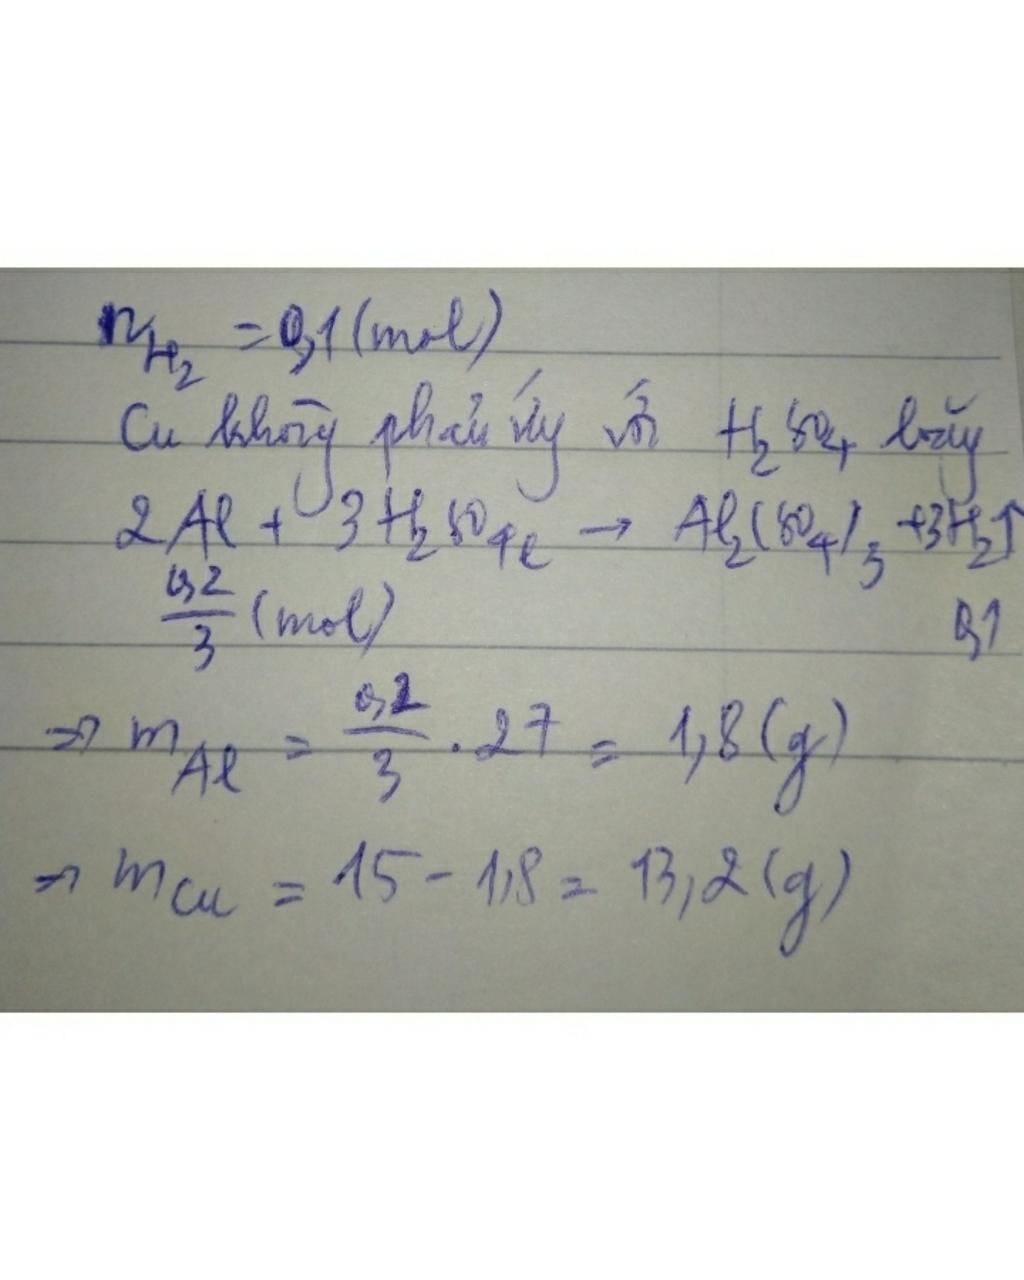 nH₂ = 0,1 (mol)
Cu không phản ứng với H₂SO₄ loãng
2Al + 3H₂SO₄ₗ → Al₂(SO₄)₃ + 3H₂↑
0,2/3 (mol) 0,1
⇒ mAl = 0,2/3 . 27 = 1,8 (g)
⇒ mCu = 15 - 1,8 = 13,2 (g)